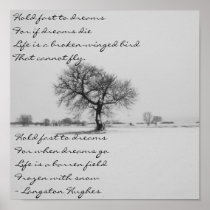 Hold fast to dreams
For if dreams die
Life is a broken-winged bird
That cannot fly.
Hold fast to dreams
For when dreams go
Life is a barren field
Frozen with snow
- Langston Hughes